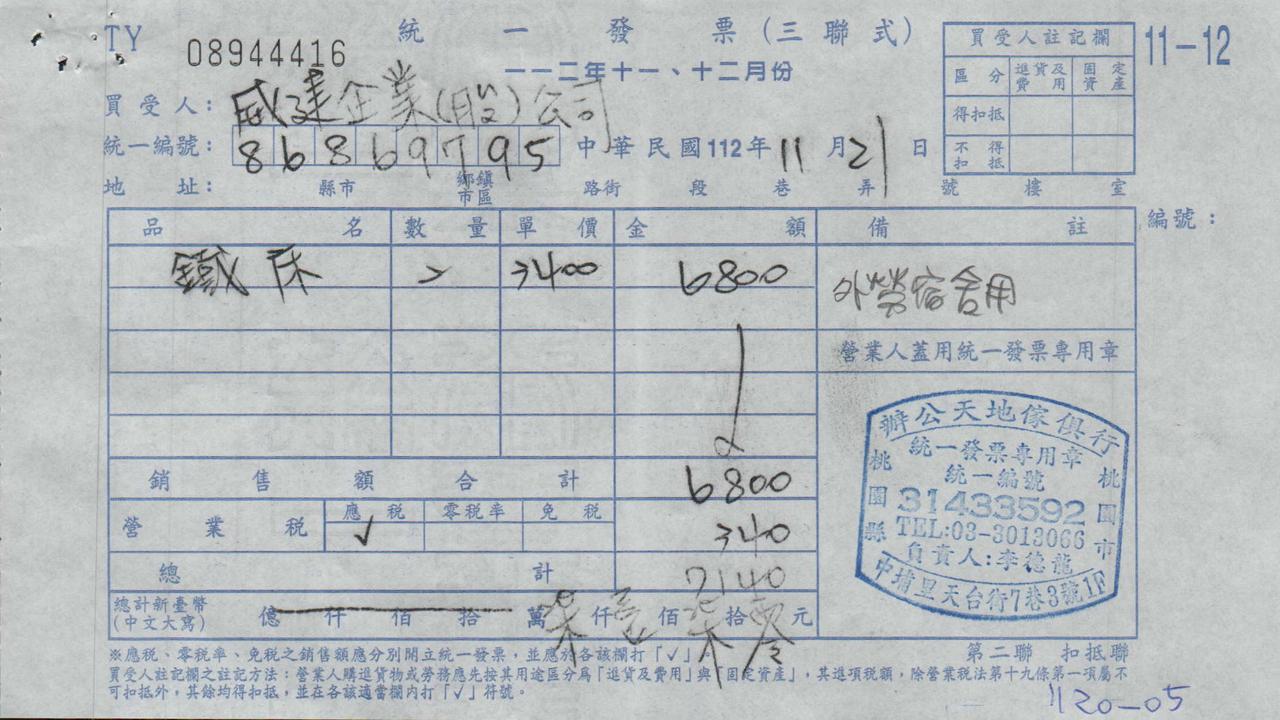 TY 08944416 統一發票(三聯式) 11-12
一一二年十一、十二月份
買受人註記欄
區分 進貨及費用 固定資產
得扣抵
不得扣抵
買受人: 威建企業(股)公司
統一編號: 86869795 中華民國112年11月21日
地址: 縣市 鄉鎮市區 路街 段 巷 弄 號 樓 室
品名 數量 單價 金額 備註 編號:
鐵床 2 3400 6800 外勞宿舍用
營業人蓋用統一發票專用章
銷售額合計 6800
營業稅 應稅 √ 零稅率 免稅 340
總計 7140
總計新臺幣(中文大寫) 億仟佰拾萬柒仟壹佰柒拾零元
辦公天地傢俱行
統一發票專用章
統一編號
31433592
TEL:03-3013066
負責人:李德龍
桃園縣 桃園市
中埔里天台街7巷3號1F
※應稅、零稅率、免稅之銷售額應分別開立統一發票,並應於各該欄打「√」。
第二聯 扣抵聯
買受人註記欄之註記方法:營業人購進貨物或勞務應先按其用途區分為「進貨及費用」與「固定資產」,其進項稅額,除營業稅法第十九條第一項屬不
可扣抵外,其餘均得扣抵,並在各該適當欄內打「√」符號。
1120-05